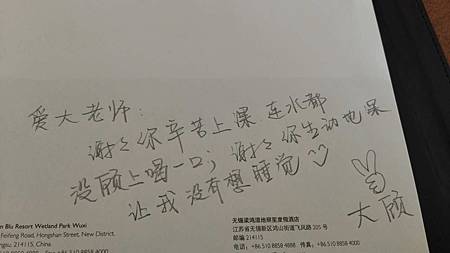 爱大老师:
谢々你辛苦上课 连水都
没顾上喝一口; 谢々你生动地课
让我没有想睡觉
大顾
n Blu Resort Wetland Park Wuxi
Feifeng Road, Hongshan Street, New District,
214115, China
无锡梁鸿湿地丽笙度假酒店
江苏省无锡新区鸿山街道飞凤路 205 号
邮编 214115
电话: +86.510 8858 4888 传真: +86.510 8858 4000